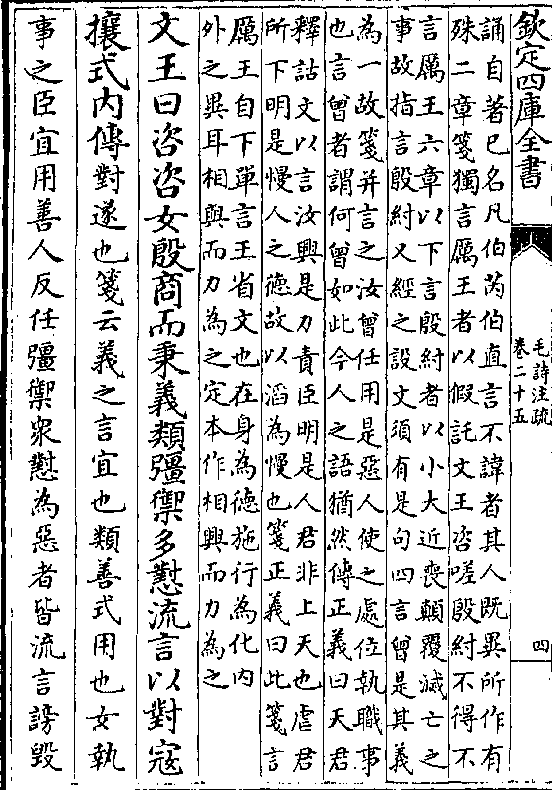 欽定四庫全書
毛詩注疏
卷二十五
四
誦自著巳名凡伯芮伯直言不諱者其人既異所作有
殊二章箋獨言厲王者以假託文王咨嗟殷紂不得不
言厲王六章以下言殷紂者以小大近喪顛覆滅亡之
事故指言殷紂又經之設文須有是句四言曾是其義
為一故箋并言之汝曾任用是惡人使之處位執職事
也言曾者謂何曾如此今人之語猶然傳正義曰天君
釋詁文以言汝興是力責臣明是人君非上天也虐君
所下明是慢人之德故以滔為慢也箋正義曰此箋言
厲王自下單言王省文也在身為德施行為化内
外之異耳相與而力為之定本作相興而力為之
文王曰咨咨女殷商而秉義類彊禦多懟流言以對寇
攘式内傳對遂也箋云義之言宜也類善式用也女執
事之臣宜用善人反任彊禦衆懟為惡者皆流言謗毀